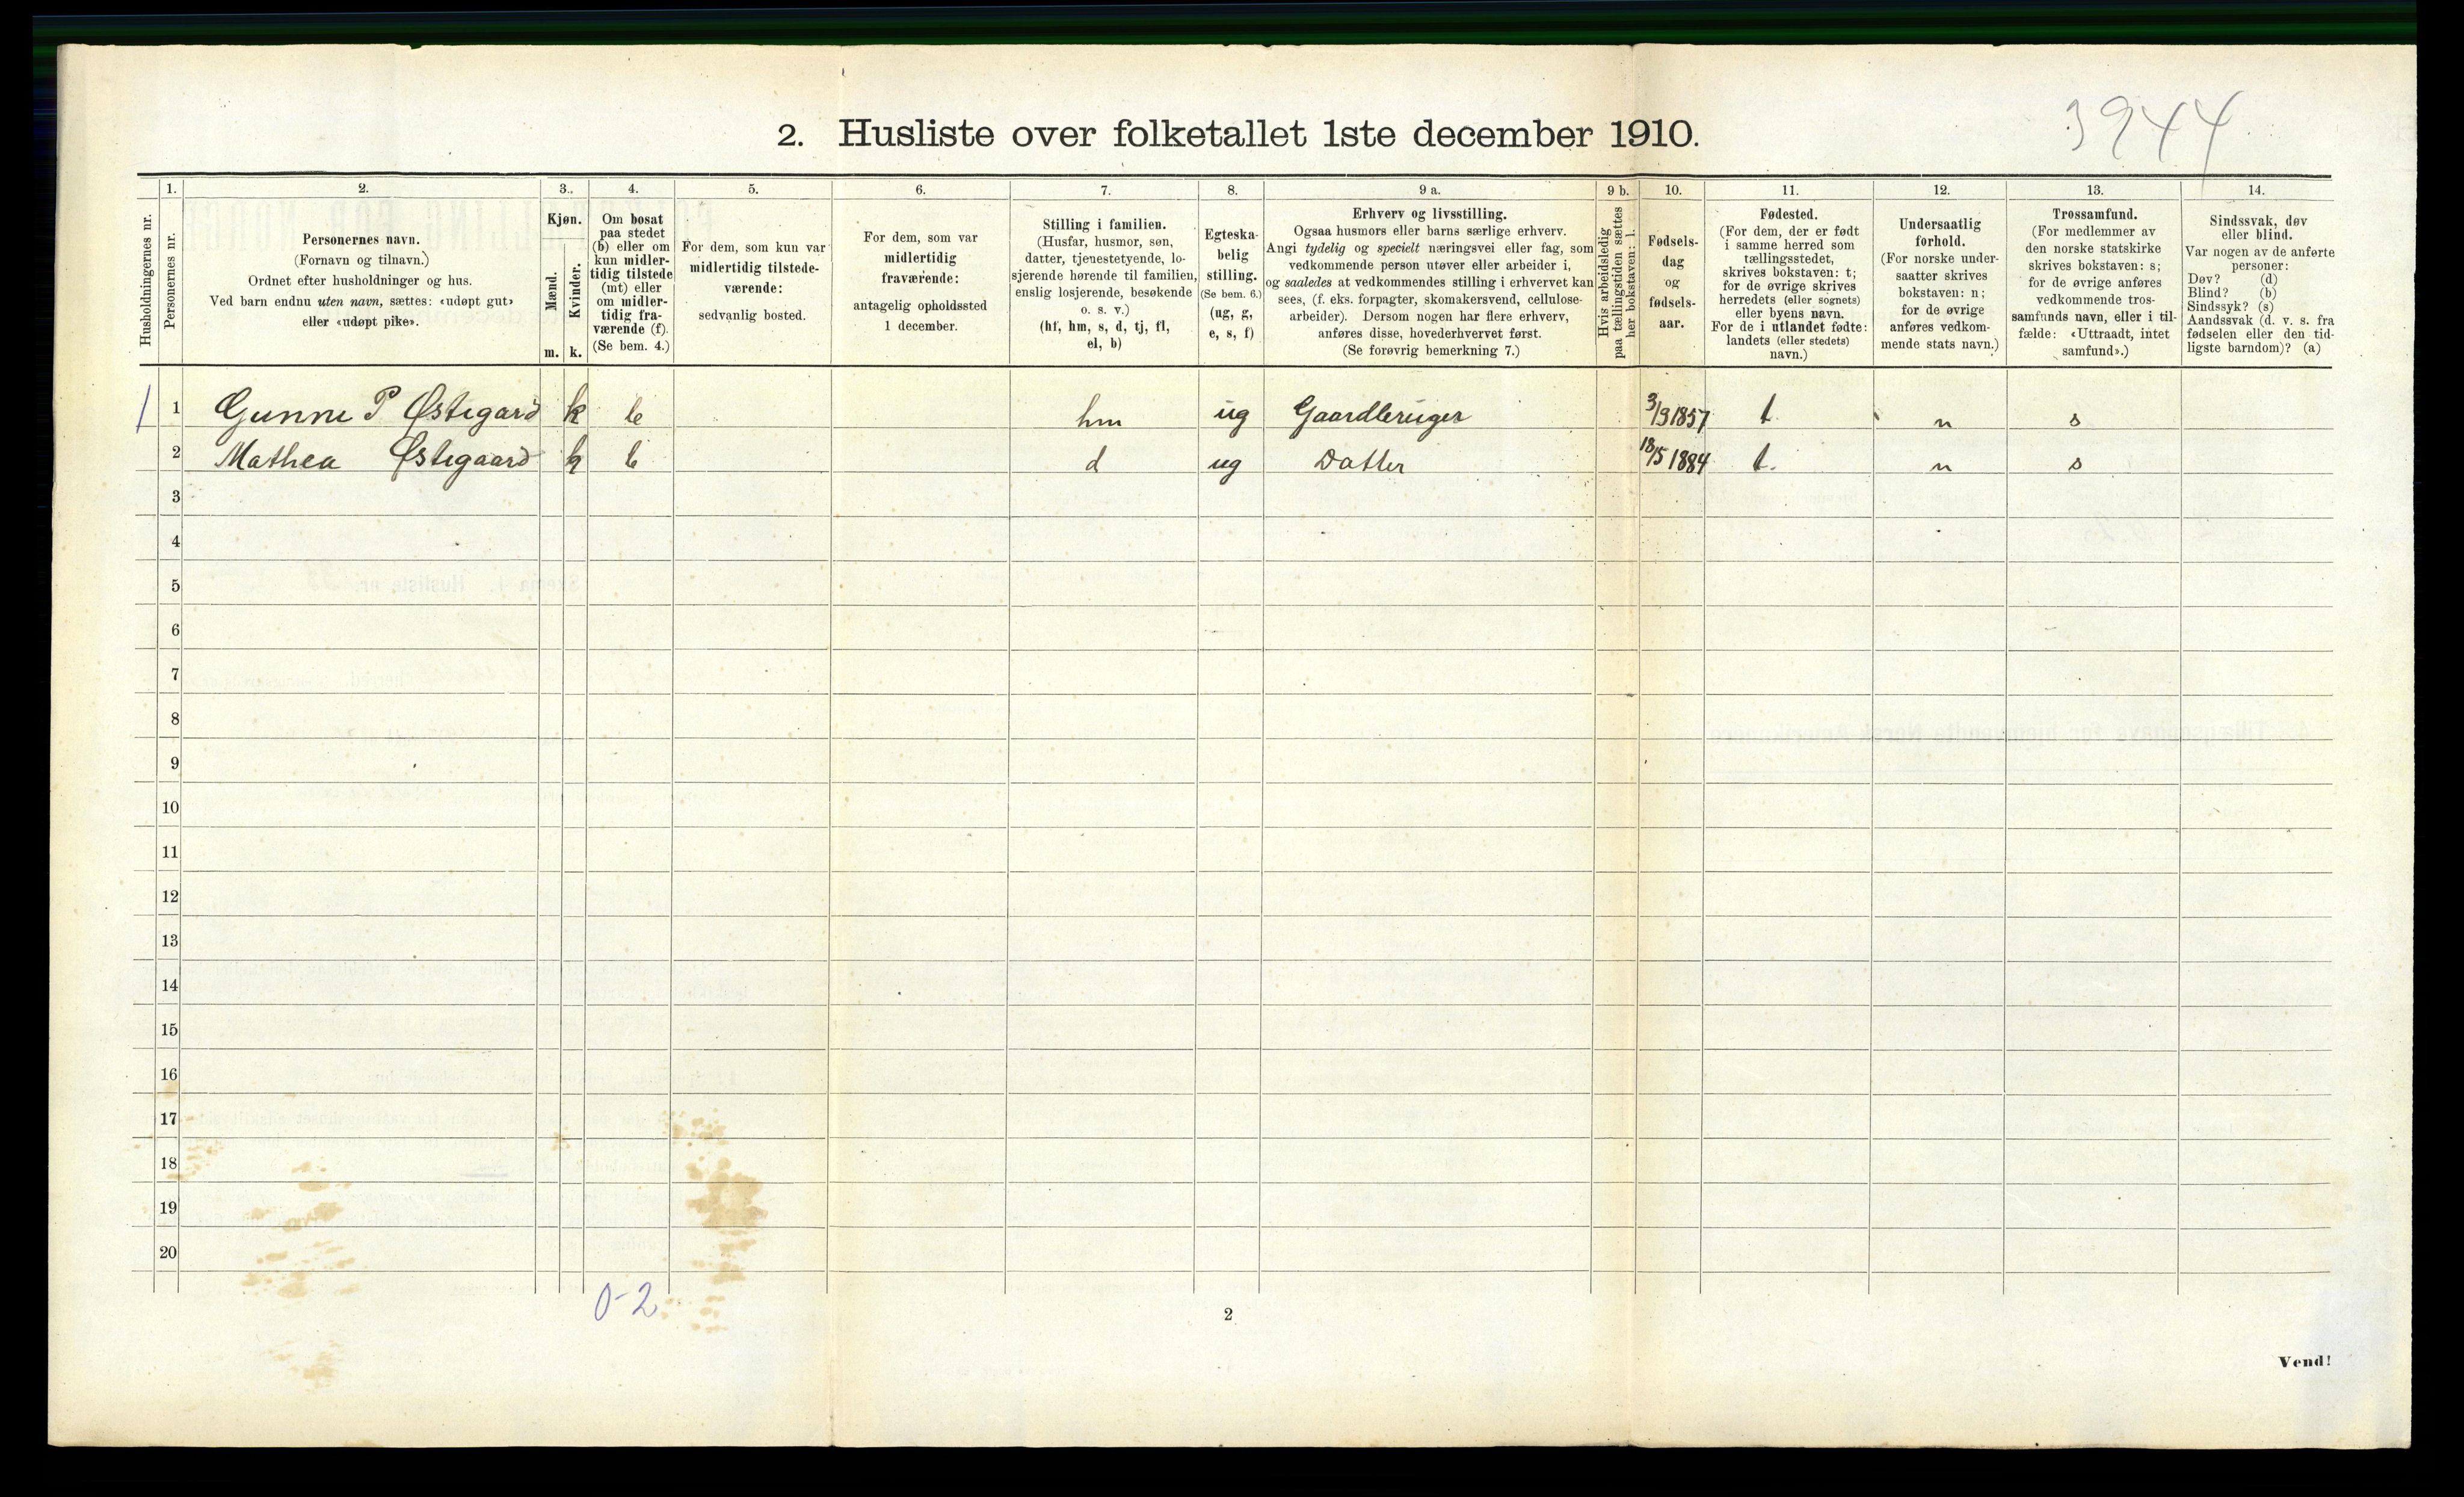 3944
2. Husliste over folketallet 1ste december 1910.
Husholdningernes nr.
1.
Personernes nr.
2.
Personernes navn.
(Fornavn og tilnavn.)
Ordnet efter husholdninger og hus.
Ved barn endnu uten navn, sættes: «udøpt gut»
eller «udøpt pike».
3.
Kjøn.
Mænd.
Kvinder.
m. k.
4.
Om bosat
paa stedet
(b) eller om
kun midler-
tidig tilstede
(mt) eller
om midler-
tidig fra-
værende (f).
(Se bem. 4.)
5.
For dem, som kun var
midlertidig tilstede-
værende:
sedvanlig bosted.
6.
For dem, som var
midlertidig
fraværende:
antagelig opholdssted
1 december.
7.
Stilling i familien.
(Husfar, husmor, søn,
datter, tjenestetyende, lo-
sjerende hørende til familien,
enslig losjerende, besøkende
o. s. v.)
(hf, hm, s, d, tj, fl,
el, b)
8.
Egteska-
belig
stilling.
(Se bem. 6.)
(ug, g,
e, s, f)
9 a.
Erhverv og livsstilling.
Ogsaa husmors eller barns særlige erhverv.
Angi tydelig og specielt næringsvei eller fag, som
vedkommende person utøver eller arbeider i,
og saaledes at vedkommendes stilling i erhvervet kan
sees, (f. eks. forpagter, skomakersvend, cellulose-
arbeider). Dersom nogen har flere erhverv,
anføres disse, hovederhvervet først.
(Se forøvrig bemerkning 7.)
9 b.
Hvis arbeidsledig
paa tællingstiden sættes
her bokstaven: l.
10.
Fødsels-
dag
og
fødsels-
aar.
11.
Fødested.
(For dem, der er født
i samme herred som
tællingsstedet,
skrives bokstaven: t;
for de øvrige skrives
herredets (eller sognets)
eller byens navn.
For de i utlandet fødte:
landets (eller stedets)
navn.)
12.
Undersaatlig
forhold.
(For norske under-
saatter skrives
bokstaven: n;
for de øvrige
anføres vedkom-
mende stats navn.)
13.
Trossamfund.
(For medlemmer av
den norske statskirke
skrives bokstaven: s;
for de øvrige anføres
vedkommende tros-
samfunds navn, eller i til-
fælde: «Uttraadt, intet
samfund».)
14.
Sindssvak, døv
eller blind.
Var nogen av de anførte
personer:
Døv? (d)
Blind? (b)
Sindssyk? (s)
Aandssvak (d. v. s. fra
fødselen eller den tid-
ligste barndom)? (a)
1 1 Gunne P Østegard k b hm ug Gaardbruger 3/9 1857 t n s
2 Mathea Østegaard k b d ug Datter 18/5 1884 t. n s
3
4
5
6
7
8
9
10
11
12
13
14
15
16
17
18
19
20
0-2
2
Vend!